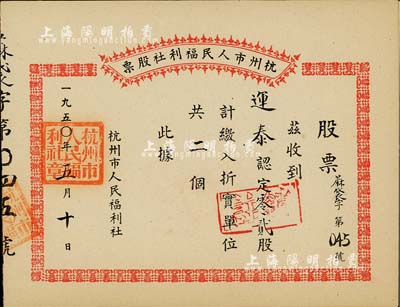 上海陽明拍賣
杭州市人民福利社股票
股票
第045號
茲收到
運泰認定零貳股
計繳入折實單位
共二個
此據
杭州市人民福利社
一九五〇年五月十日
杭州市
人民福
利社章
字第〇四五號
上海陽明拍賣